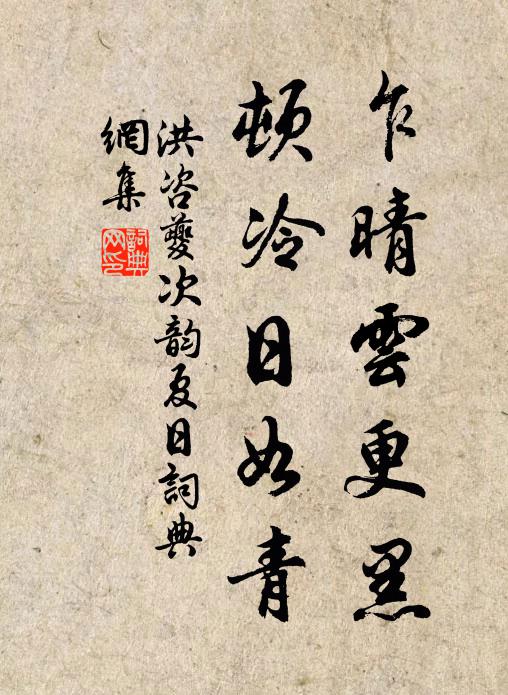 乍晴雲更黑
頓冷日如青
洪咨夔次韵夏日詞典
網集
詞典网印